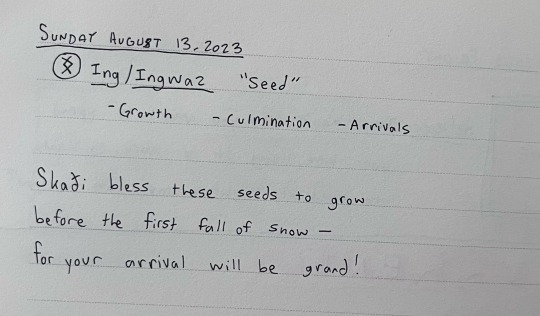 SUNDAY AUGUST 13, 2023
ᛝ Ing/Ingwaz "Seed"
- Growth - Culmination - Arrivals
Skaði bless these seeds to grow
before the first fall of snow –
for your arrival will be grand!